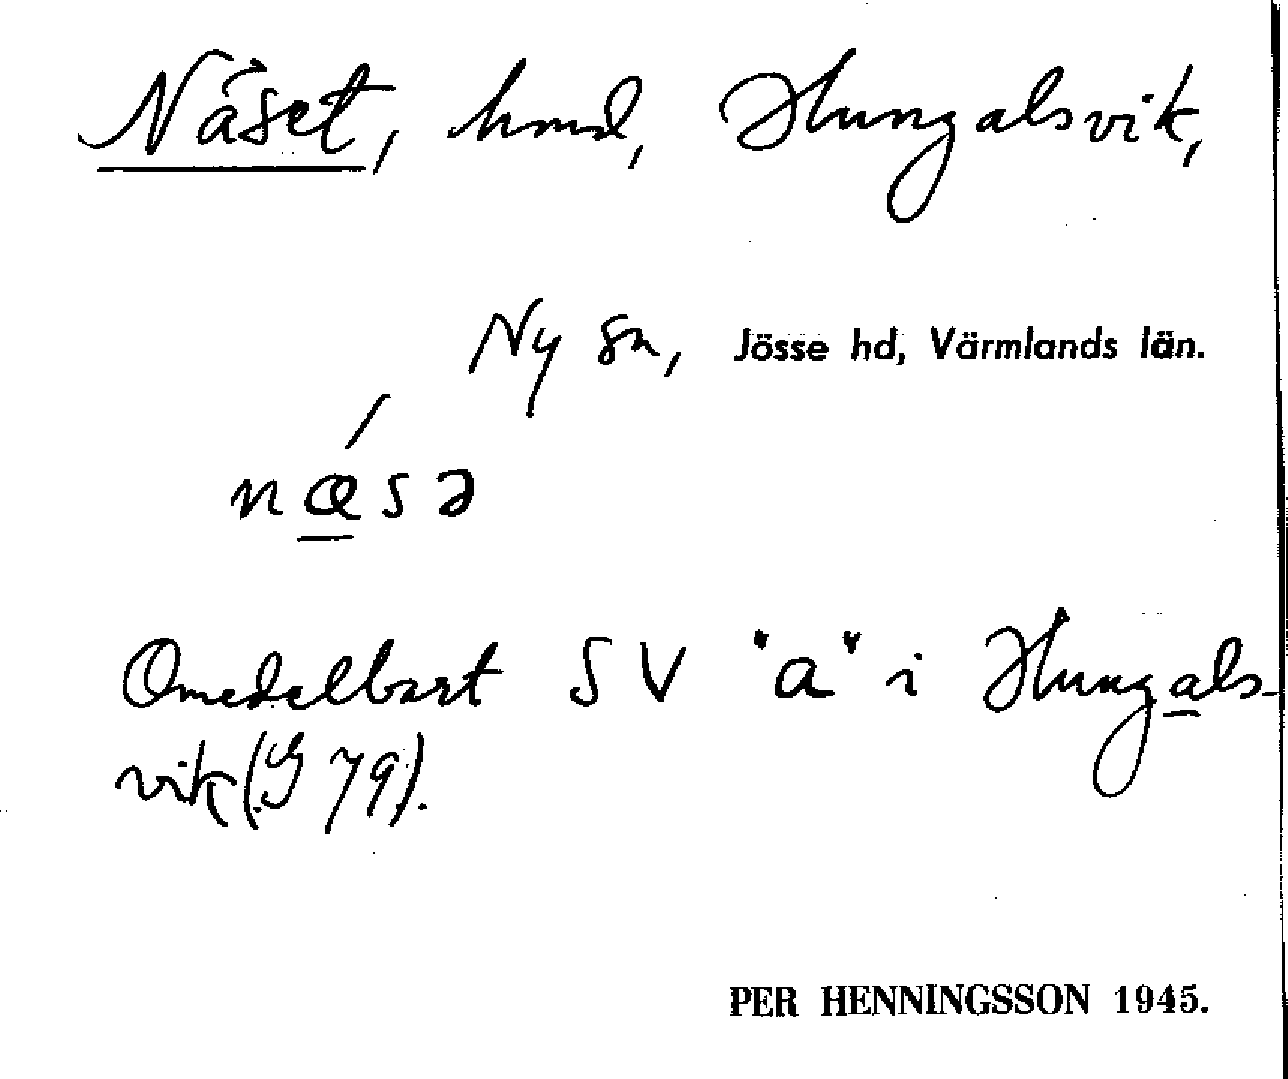 Näset, hmd, Hungalsvik,
Ny sn, Jösse hd, Värmlands län.
nǽ̲sə
Omedelbart SV "a" i Hunga̲ls-
vik (G 79).
PER HENNINGSSON 1945.